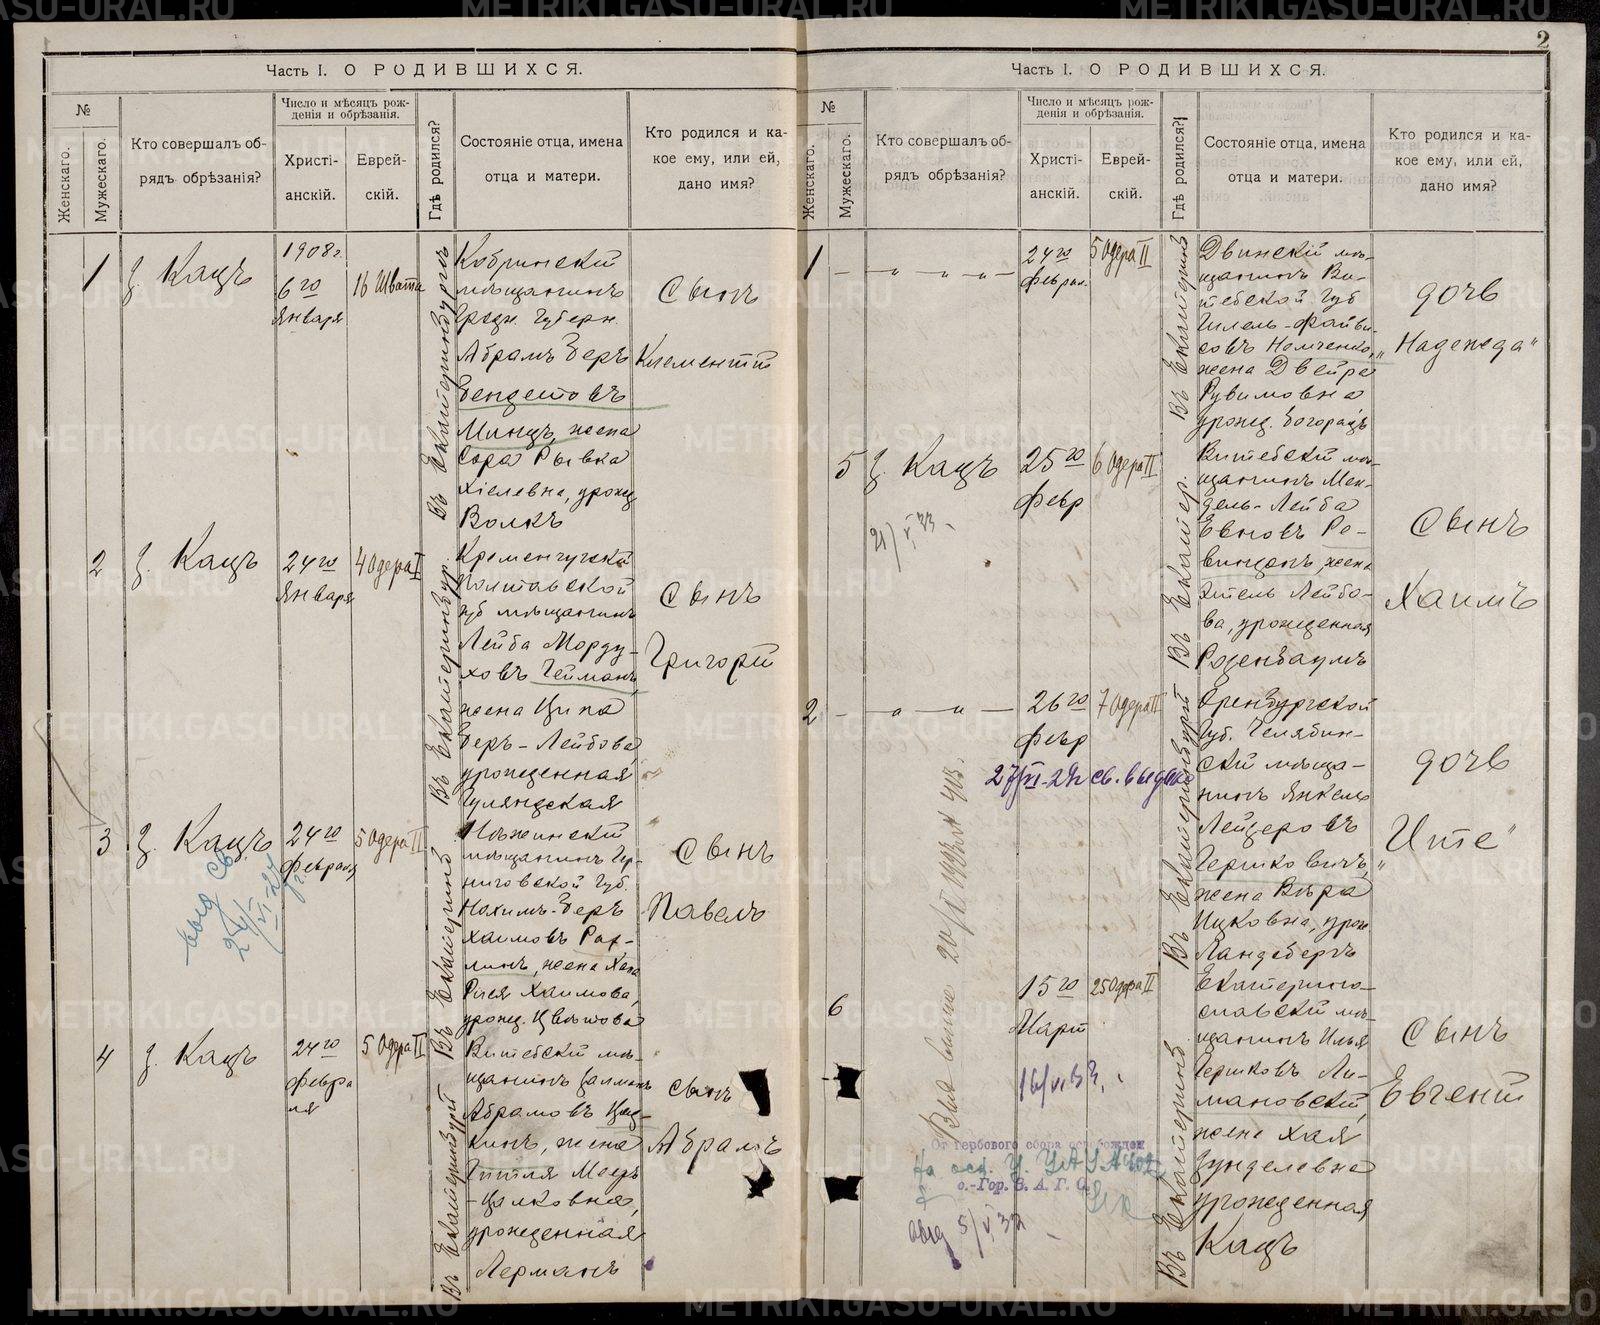 METRIKI.GASO-URAL.RU
2
Часть I. О РОДИВШИХСЯ.
№
Женскаго.
Мужескаго.
Кто совершалъ об-
рядъ обрѣзанія?
Число и мѣсяцъ рож-
денія и обрѣзанія.
Христі-
анскій.
Еврей-
скій.
Гдѣ родился?
Состояніе отца, имена
отца и матери.
Кто родился и ка-
кое ему, или ей,
дано имя?
1
З. Кацъ
1908 г.
6го
Января
16 Швата
Въ Екатеринбургѣ
Кобринскій
мѣщанинъ
Гродн. Губерн.
Абрамъ Беръ
Минцъ, жена
Сора Рывка
Хіелевна, урожд
Волкъ
Сынъ
Климентій
2
З. Кацъ
24го
Января
4 Одера I
Въ Екатеринбур.
Кременчугскій
Полтавской
губ мѣщанинъ
Лейба Морду-
ховъ Гейманъ,
жена Ципа
Беръ-Лейбова,
урожденная
Сынъ
Григорій
3
З. Кацъ
24го
Февраля
5 Одера II
Въ Екатеринб.
Нѣжинскій
мѣщанинъ Чер-
ниговской Губ.
Нахимъ-Беръ
Хаимовъ
жена Хая
Рися Хаимова,
урожд. Цвѣтова
Сынъ
Павелъ
4
З. Кацъ
24го
Февра
ля
5 Одера II
Въ Екатеринбург
Витебскій мѣ-
щанинъ Залманъ
Абрамовъ
кинъ, жена
Гитля
урожденная
Лерманъ
Сынъ
Абрамъ
Часть I. О РОДИВШИХСЯ.
№
Женскаго.
Мужескаго.
Кто совершалъ об-
рядъ обрѣзанія?
Число и мѣсяцъ рож-
денія и обрѣзанія.
Христі-
анскій.
Еврей-
скій.
Гдѣ родился?
Состояніе отца, имена
отца и матери.
Кто родился и ка-
кое ему, или ей,
дано имя?
1
24го
Феврал.
5 Одера II
Двинскій мѣ-
щанинъ Ви-
тебской Губ
Гилель-Файви-
совъ Немченко,
жена Двейра
Рувимовна
урожд. Богорадъ
дочь
„Надежда“
5
З. Кацъ
25го
Февр
6 Одера II
Въ Екатер.
Витебскій мѣ-
щанинъ Мен-
дель-Лейба
Евновъ Ре-
жена
Лейбо-
ва, урожденная
Розенбаумъ
Сынъ
Хаимъ
2
26го
Февр
7 Одера II
27/VI-24 св. выдано
Оренбургской
Губ. Челябин-
скій мѣща-
нинъ Янкель
Лейзеровъ
Гершковичъ,
жена Вѣра
Ицковна, урож
Ландсбергъ
дочь
„Ите“
6
15го
Март
25 Одера II
Въ Екатеринб.
Екатерино-
славскій мѣ-
щанинъ Илья
Гершковъ Ли-
мановскій,
жена Хая
Зунделевна
урожденная
Кацъ
Сынъ
Евгеній
16/VI 33,
От гербового сбора освобожден
о.-Гор. З. А. Г. С.
выд 5/V 32